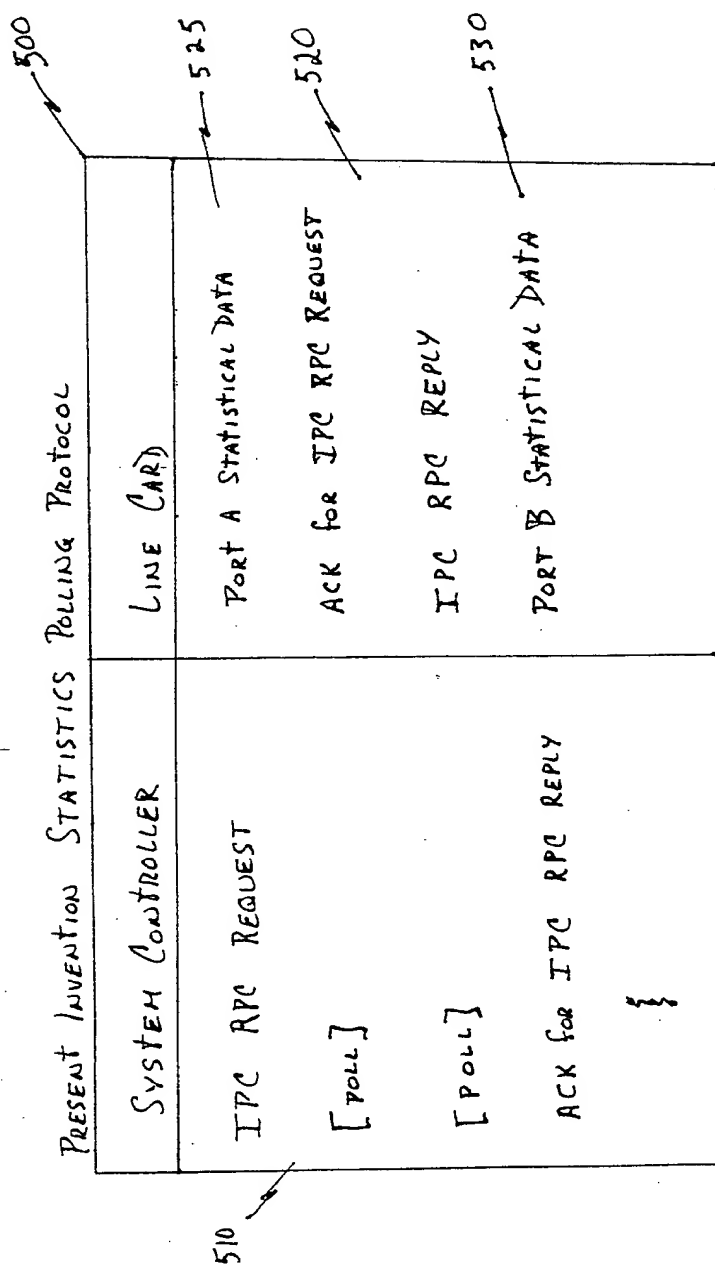 PRESENT INVENTION STATISTICS POLLING PROTOCOL
500
SYSTEM CONTROLLER LINE CARD
IPC RPC REQUEST PORT A STATISTICAL DATA
525
510
[POLL] ACK for IPC RPC REQUEST
520
[POLL] IPC RPC REPLY
ACK for IPC RPC REPLY PORT B STATISTICAL DATA
530